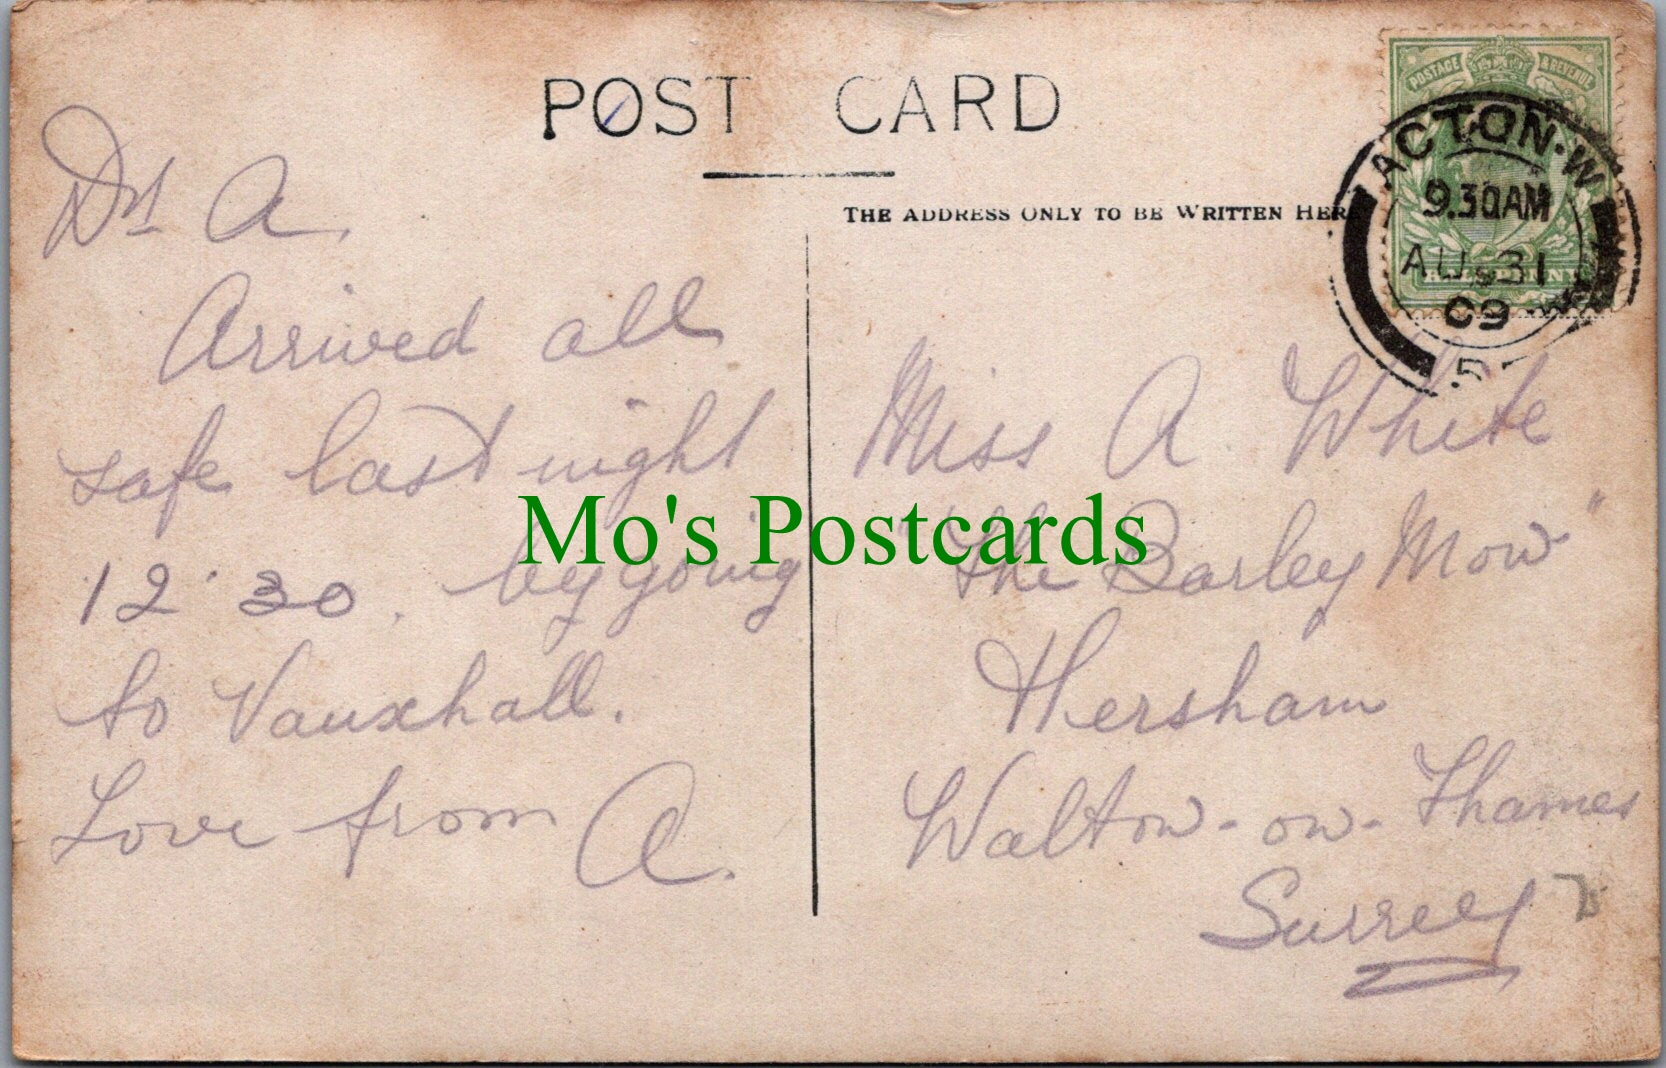 POST CARD
THE ADDRESS ONLY TO BE WRITTEN HERE
POSTAGE & REVENUE
HALFPENNY
ACTON·W
9.30AM
AUG 31
09
5
Drst A.
Arrived all
safe last night
12·30. by going
to Vauxhall.
Love from A.
Miss A White
"The Barley Mow"
Hersham
Walton-on-Thames
Surrey
Mo's Postcards